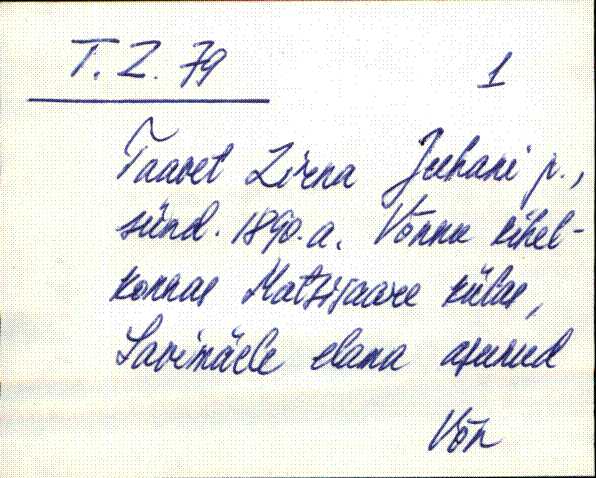 T. Z. 79
1
Taavet Zirna Juhani p.,
sünd. 1890. a. Võnnu kihel-
konnas Matsisaare külas,
Savimäele elama asunud
Võn